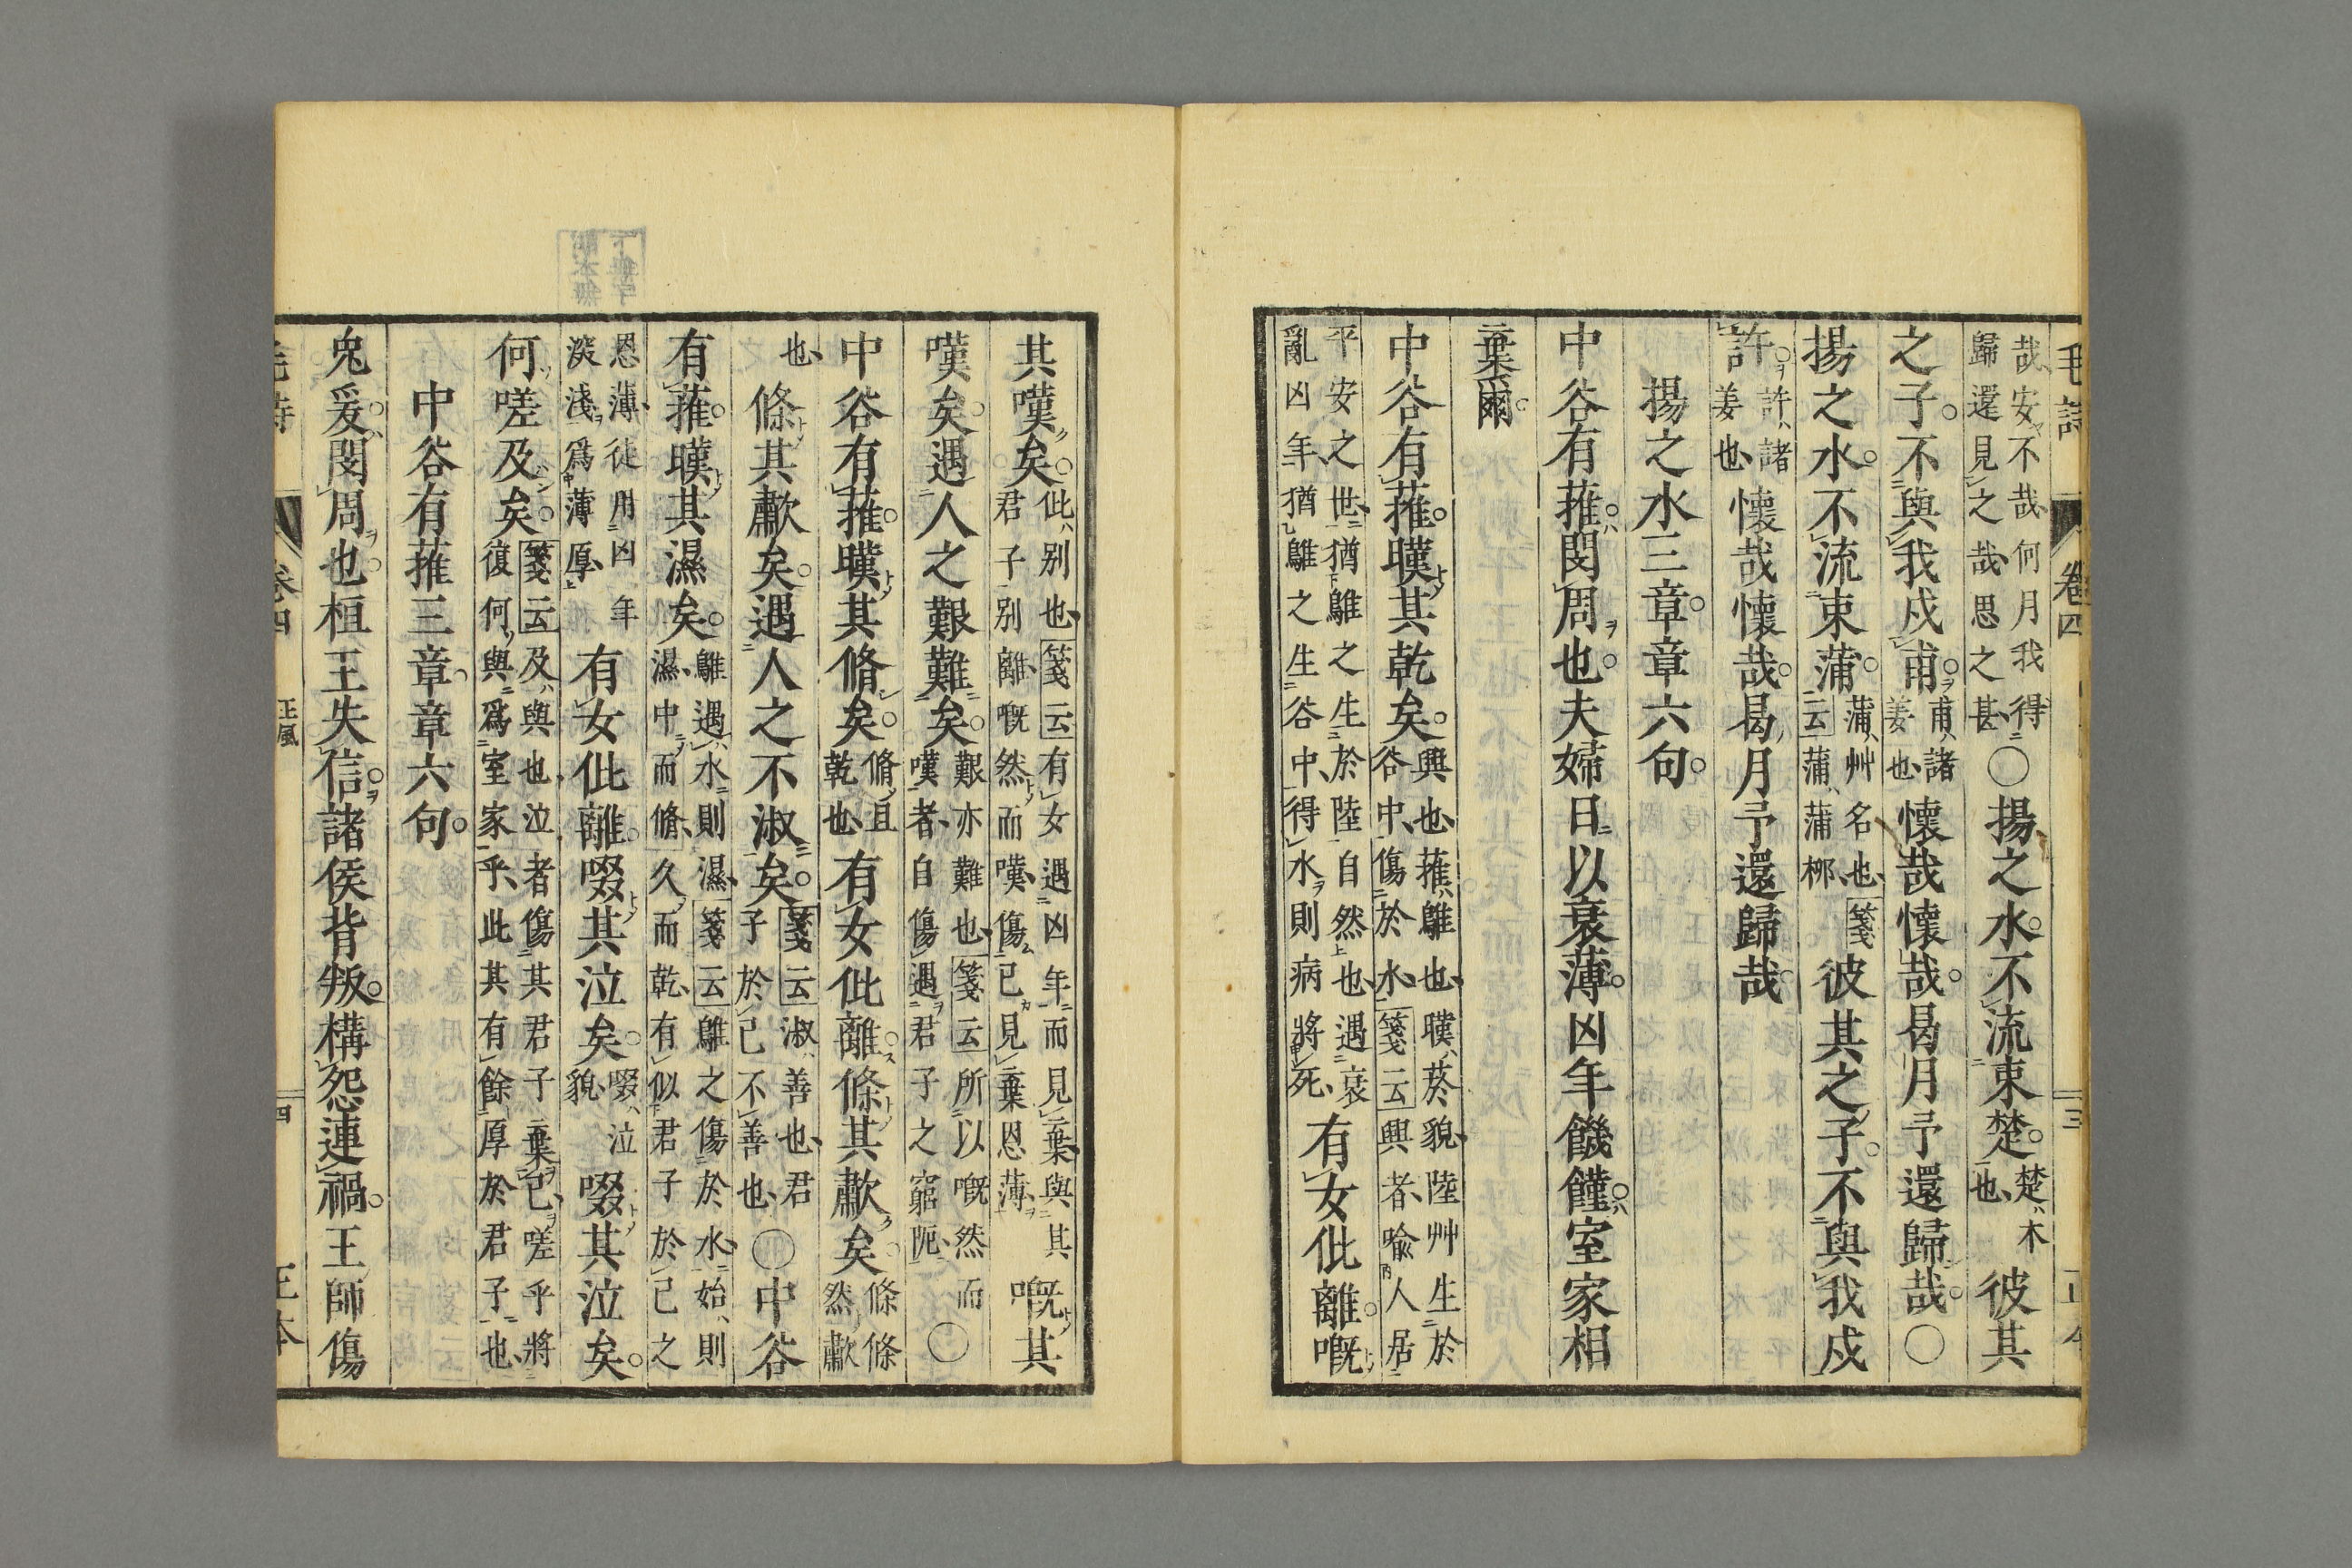 毛詩 卷四 三
哉安不哉何月我得
歸還見之哉思之甚
○揚之水不流束楚
楚木
也
彼其
之子不與我戍甫
甫諸
姜也
懷哉懷哉曷月予還歸哉○
揚之水不流束蒲
蒲艸名也箋
云蒲蒲栁
彼其之子不與我戍
許
許諸
姜也
懷哉懷哉曷月予還歸哉
揚之水三章章六句
中谷有蓷閔周也夫婦日以衰薄凶年饑饉室家相
棄爾
中谷有蓷暵其乾矣
興也蓷鵻也暵菸貌陸艸生於
谷中傷於水箋云興者喩人居
平安之世猶鵻之生於陸自然也遇衰
亂凶年猶鵻之生谷中得水則病將死
有女仳離嘅
其嘆矣
仳別也箋云有女遇凶年而見棄與其
君子別離嘅然而嘆傷已見棄恩薄
嘅其
嘆矣遇人之艱難矣
艱亦難也箋云所以嘅然而
嘆者自傷遇君子之窮阨
○
中谷有蓷暵其脩矣
脩且
乾也
有女仳離條其歗矣
條條
然歗
也
條其歗矣遇人之不淑矣
箋云淑善也君
子於己不善也
○中谷
有蓷暵其濕矣
鵻遇水則濕箋云鵻之傷於水始則
濕中而脩久而乾有似君子於己之
恩薄徒用凶年
淡淺爲薄厚
有女仳離啜其泣矣
啜泣
貌
啜其泣矣
何嗟及矣
箋云及與也泣者傷其君子棄己嗟乎將
復何與爲室家乎此其有餘厚於君子也
中谷有蓷三章章六句
兔爰閔周也桓王失信諸侯背叛構怨連禍王師傷
毛詩 卷四 王風 四